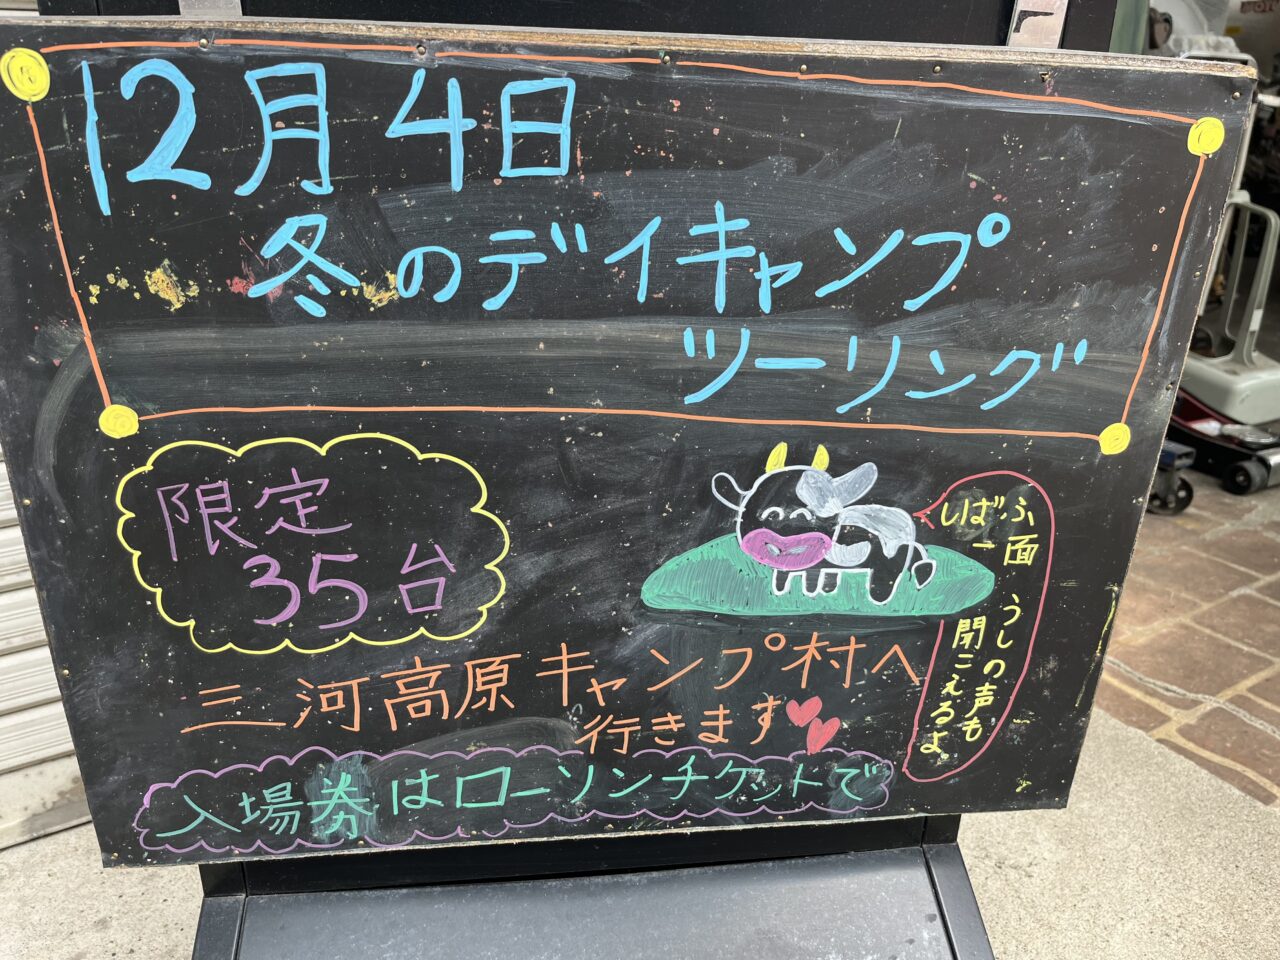 12月4日
冬のデイキャンプ
ツーリング
限定
35台
しばふ面
うしの声も
聞こえるよ
三河高原キャンプ村へ
行きます
入場券はローソンチケットで